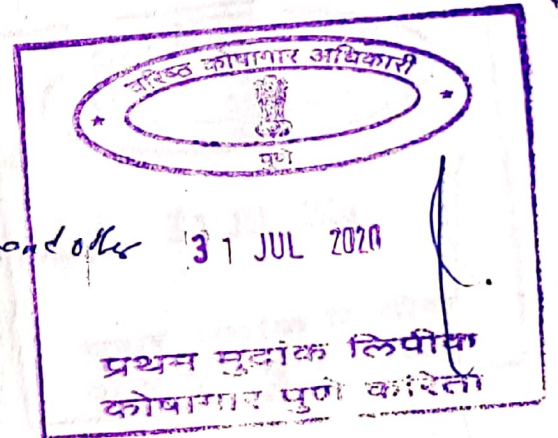 वरिष्ठ कोषागार अधिकारी
पुणे
and other 31 JUL 2020
प्रथम मुद्रांक लिपीक
कोषागार पुणे करिता